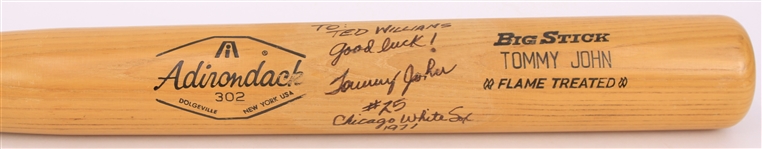 Adirondack
302
DOLGEVILLE NEW YORK USA
TO:
TED WILLIAMS
Good luck!
Tommy John
#25
Chicago White Sox
1971
BIG STICK
TOMMY JOHN
FLAME TREATED